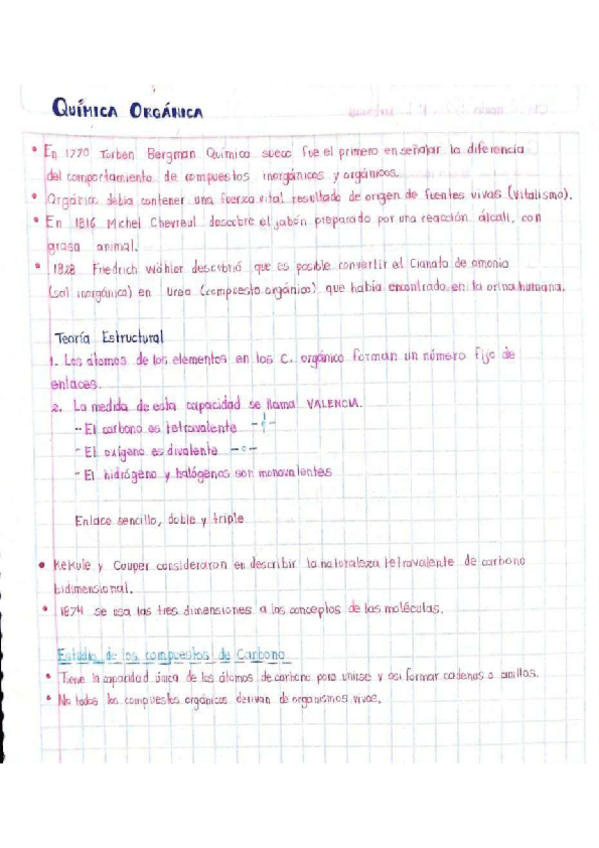 QUÍMICA ORGÁNICA
• En 1770 Torben Bergman Químico sueco fue el primero en señalar la diferencia
del comportamiento de compuestos inorgánicos y orgánicos.
• Orgánico debía contener una fuerza vital resultado de origen de fuentes vivas (Vitalismo).
• En 1816 Michel Chevreul descubre el jabón preparado por una reacción álcali, con
grasa animal.
• 1828 Friedrich Wöhler descubrió que es posible convertir el Cianato de amonio
(sal inorgánica) en Urea (compuesto orgánico) que había encontrado en la orina humana.
Teoría Estructural
1. Los átomos de los elementos en los C. orgánico forman un número fijo de
enlaces.
2. La medida de esta capacidad se llama VALENCIA.
- El carbono es tetravalente
- El oxígeno es divalente -o-
- El hidrógeno y halógenos son monovalentes
Enlace sencillo, doble y triple
• Kekule y Couper consideraron en describir la naturaleza tetravalente de carbono
bidimensional.
• 1874 se usa las tres dimensiones a los conceptos de las moléculas.
Estudio de los compuestos de Carbono
• Tiene la capacidad única de los átomos de carbono para unirse y así formar cadenas o anillos.
• No todos los compuestos orgánicos derivan de organismos vivos.